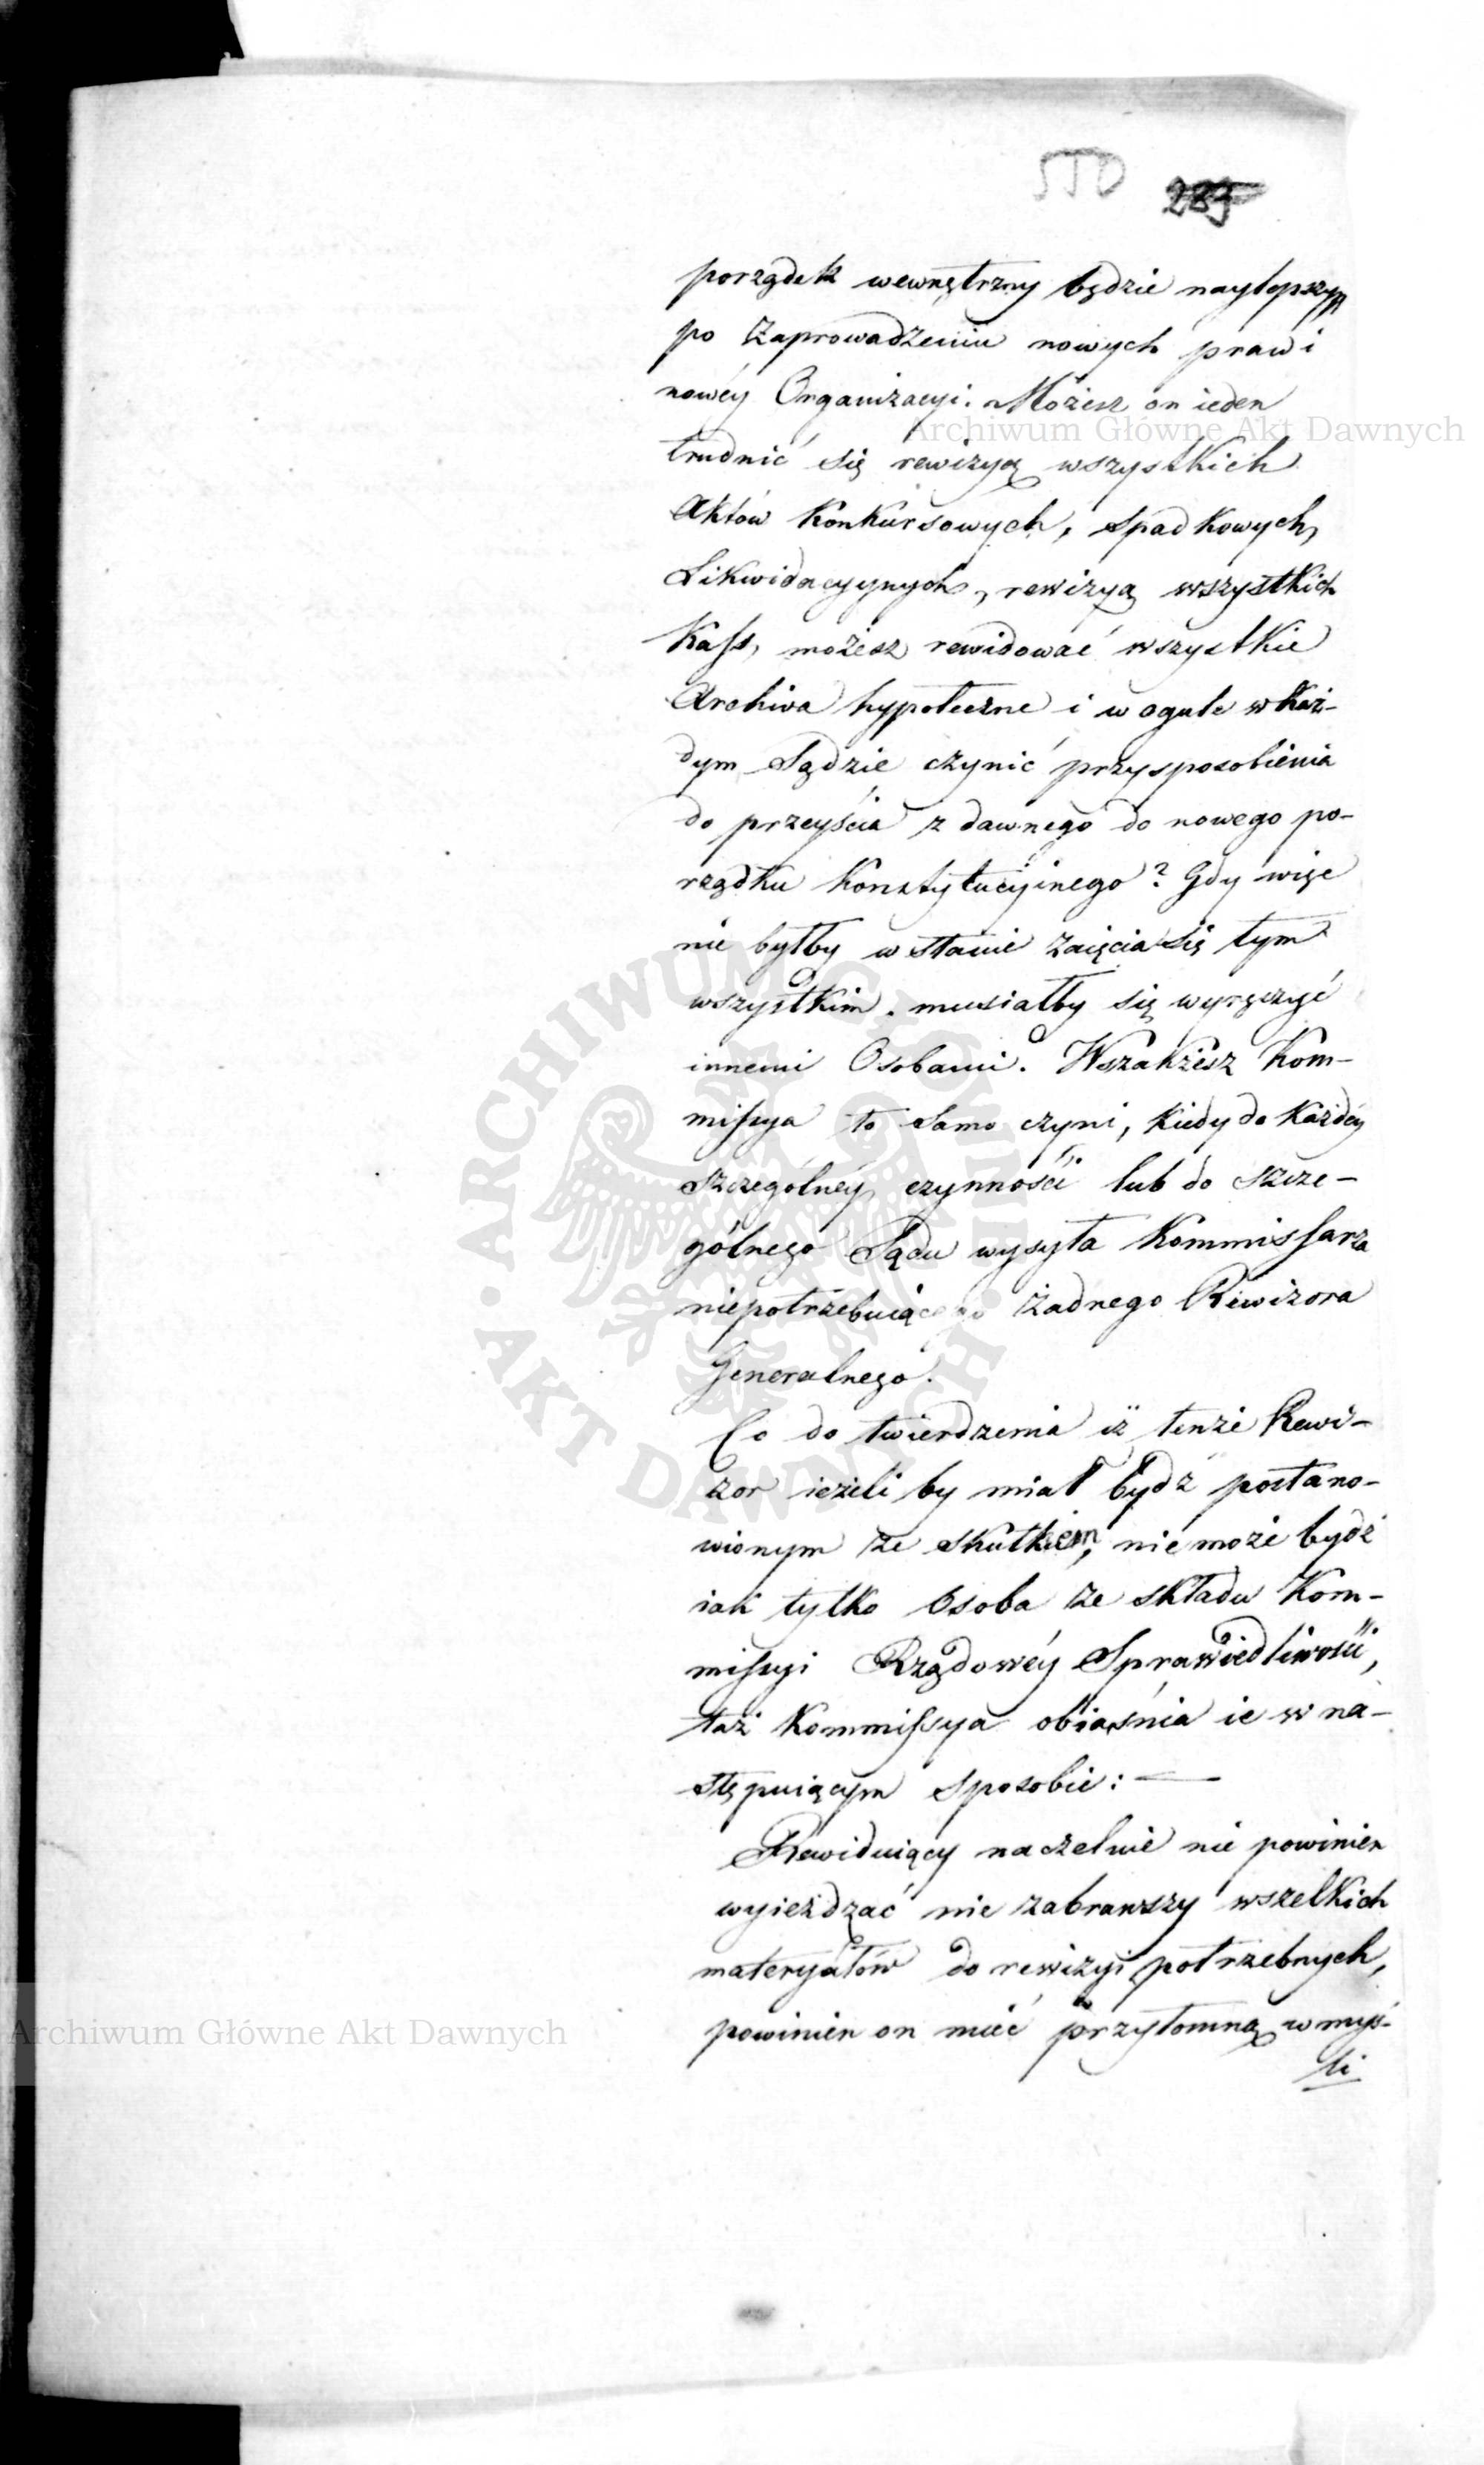 porządek wewnętrzny będzie naylepszym
po zaprowadzeniu nowych praw i
nowéy Organizacyi. Możesz on ieden
Archiwum Główne Akt Dawnych
trudnić się rewizyą wszystkich
Aktów Konkursowych, Spadkowych,
Likwidacyynych, rewizyą wszystkich
Kass, możesz rewidować wszystkie
Archiva hypoteczne i w ogule w każ-
dym Sądzie czynić przysposobienia
do przeyścia z dawnego do nowego po-
rządku Konstytucyinego? Gdy więc
nie byłby w stanie zaięcia się tym
wszystkim. musiałby się wyręczyć
innemi Osobami. Wszakżesz Kom-
missya to samo czyni, kiedy do każdéy
szczególnéy czynności lub do szcze-
gólnego Sądu wysyła Kommissarza
niepotrzebuiącego żadnego Rewizora
Generalnego.
Co do twierdzenia iż tenże Rewi-
zor ieżeli by miał bydź postano-
wionym ze skutkiem, nie może bydź
iak tylko Osoba ze składu Kom-
missyi Rządowéy Sprawiedliwości,
taż Kommissya obiaśnia ie w na-
stępuiącym sposobie: —
Rewiduiący naczelnie nie powinien
wyieżdzać nie zabrawszy wszelkich
materyałów do rewizyi potrzebnych,
powinien on mieć przytomną w myś-
li
Archiwum Główne Akt Dawnych
ARCHIWUM GŁÓWNE AKT DAWNYCH